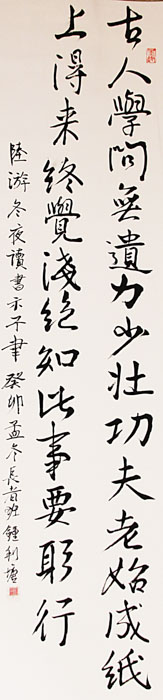 古人學問無遺力少壯功夫老始成紙
上得来終覺淺絶知此事要躬行
陸游冬夜讀書示子聿 癸卯孟冬長青班鍾利